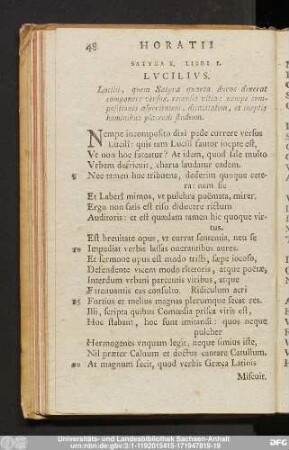 48 HORATII
SATYRA X. LIBRI I.
LVCILIVS.
Lucilii, quem Satyra quarta durus dixerat
componere versus, reliqua vitia: nempe com-
hominibus placendi studium.
Nempe incomposito dixi pede currere versus
Lucili: quis tam Lucili fautor inepte est,
Vt non hoc fateatur? At idem, quod sale multo
Vrbem defricuit, charta laudatur eadem.
5 Nec tamen hoc tribuens, dederim quoque cete-
ra: nam sic
Et Laberî mimos, vt pulchra poëmata, mirer.
Ergo non satis est risu diducere rictum
Auditoris: et est quædam tamen hic quoque vir-
tus.
Est breuitate opus, vt currat sententia, neu se
10 Impediat verbis lassas onerantibus aures.
Et sermone opus est modo tristi, sæpe iocoso,
Defendente vicem modo rhetoris, atque poëtæ,
Interdum vrbani parcentis viribus, atque
Extenuantis eas consulto. Ridiculum acri
15 Fortius et melius magnas plerumque secat res.
Illi, scripta quibus Comœdia prisca viris est,
Hoc stabant, hoc sunt imitandi: quos neque
pulcher
Hermogenes vnquam legit, neque simius iste,
Nil præter Caluum et doctus cantare Catullum.
20 At magnum fecit, quod verbis Græca Latinis
Miscuit.
Universitäts- und Landesbibliothek Sachsen-Anhalt
urn:nbn:de:gbv:3:1-1192015415-171947819-19